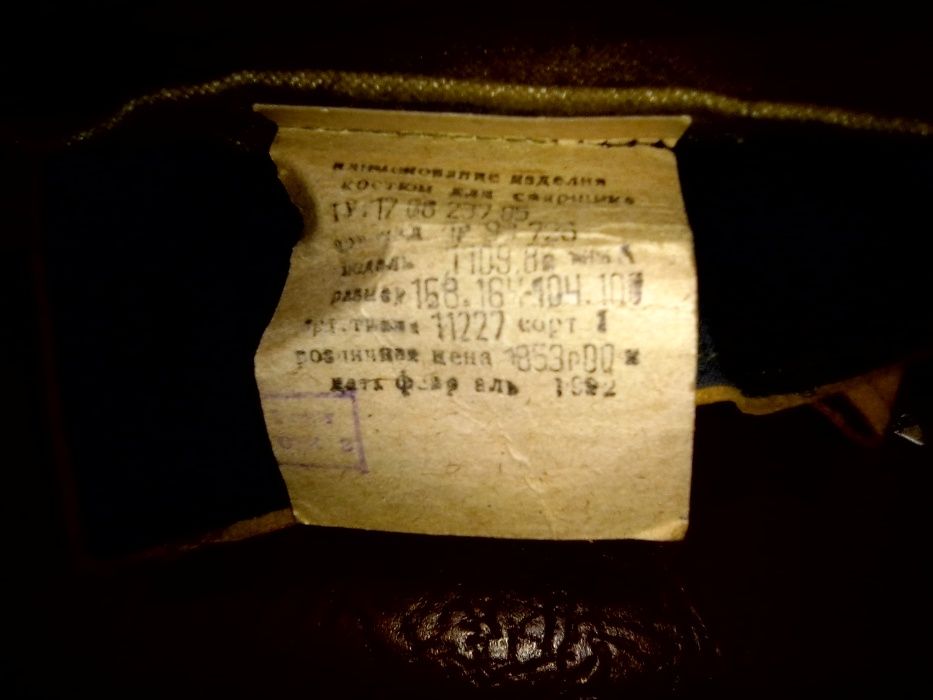 наименование изделия
костюм для сварщика
ТУ.17 08 237.05
модель 1109.8
размер 158.164-104.10
арт.ткани 11227 сорт 1
розничная цена 1853р00к
дата февраль 1992